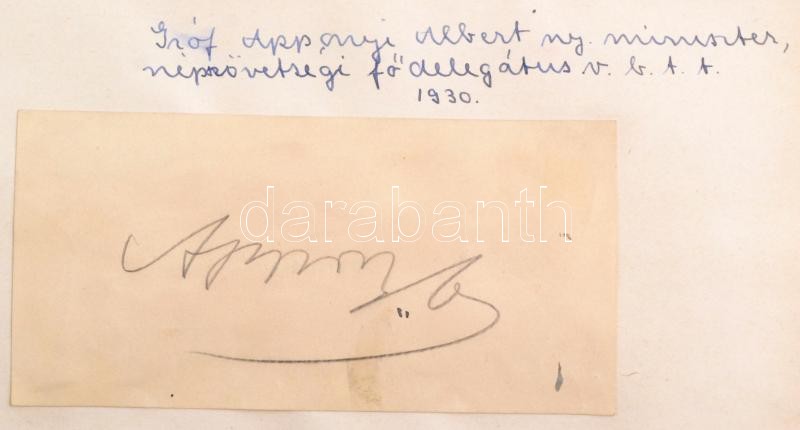 Gróf Apponyi Albert ny. miniszter,
népszövetségi fődelegátus v. b. t. t.
1930.
darabanth
Apponyi